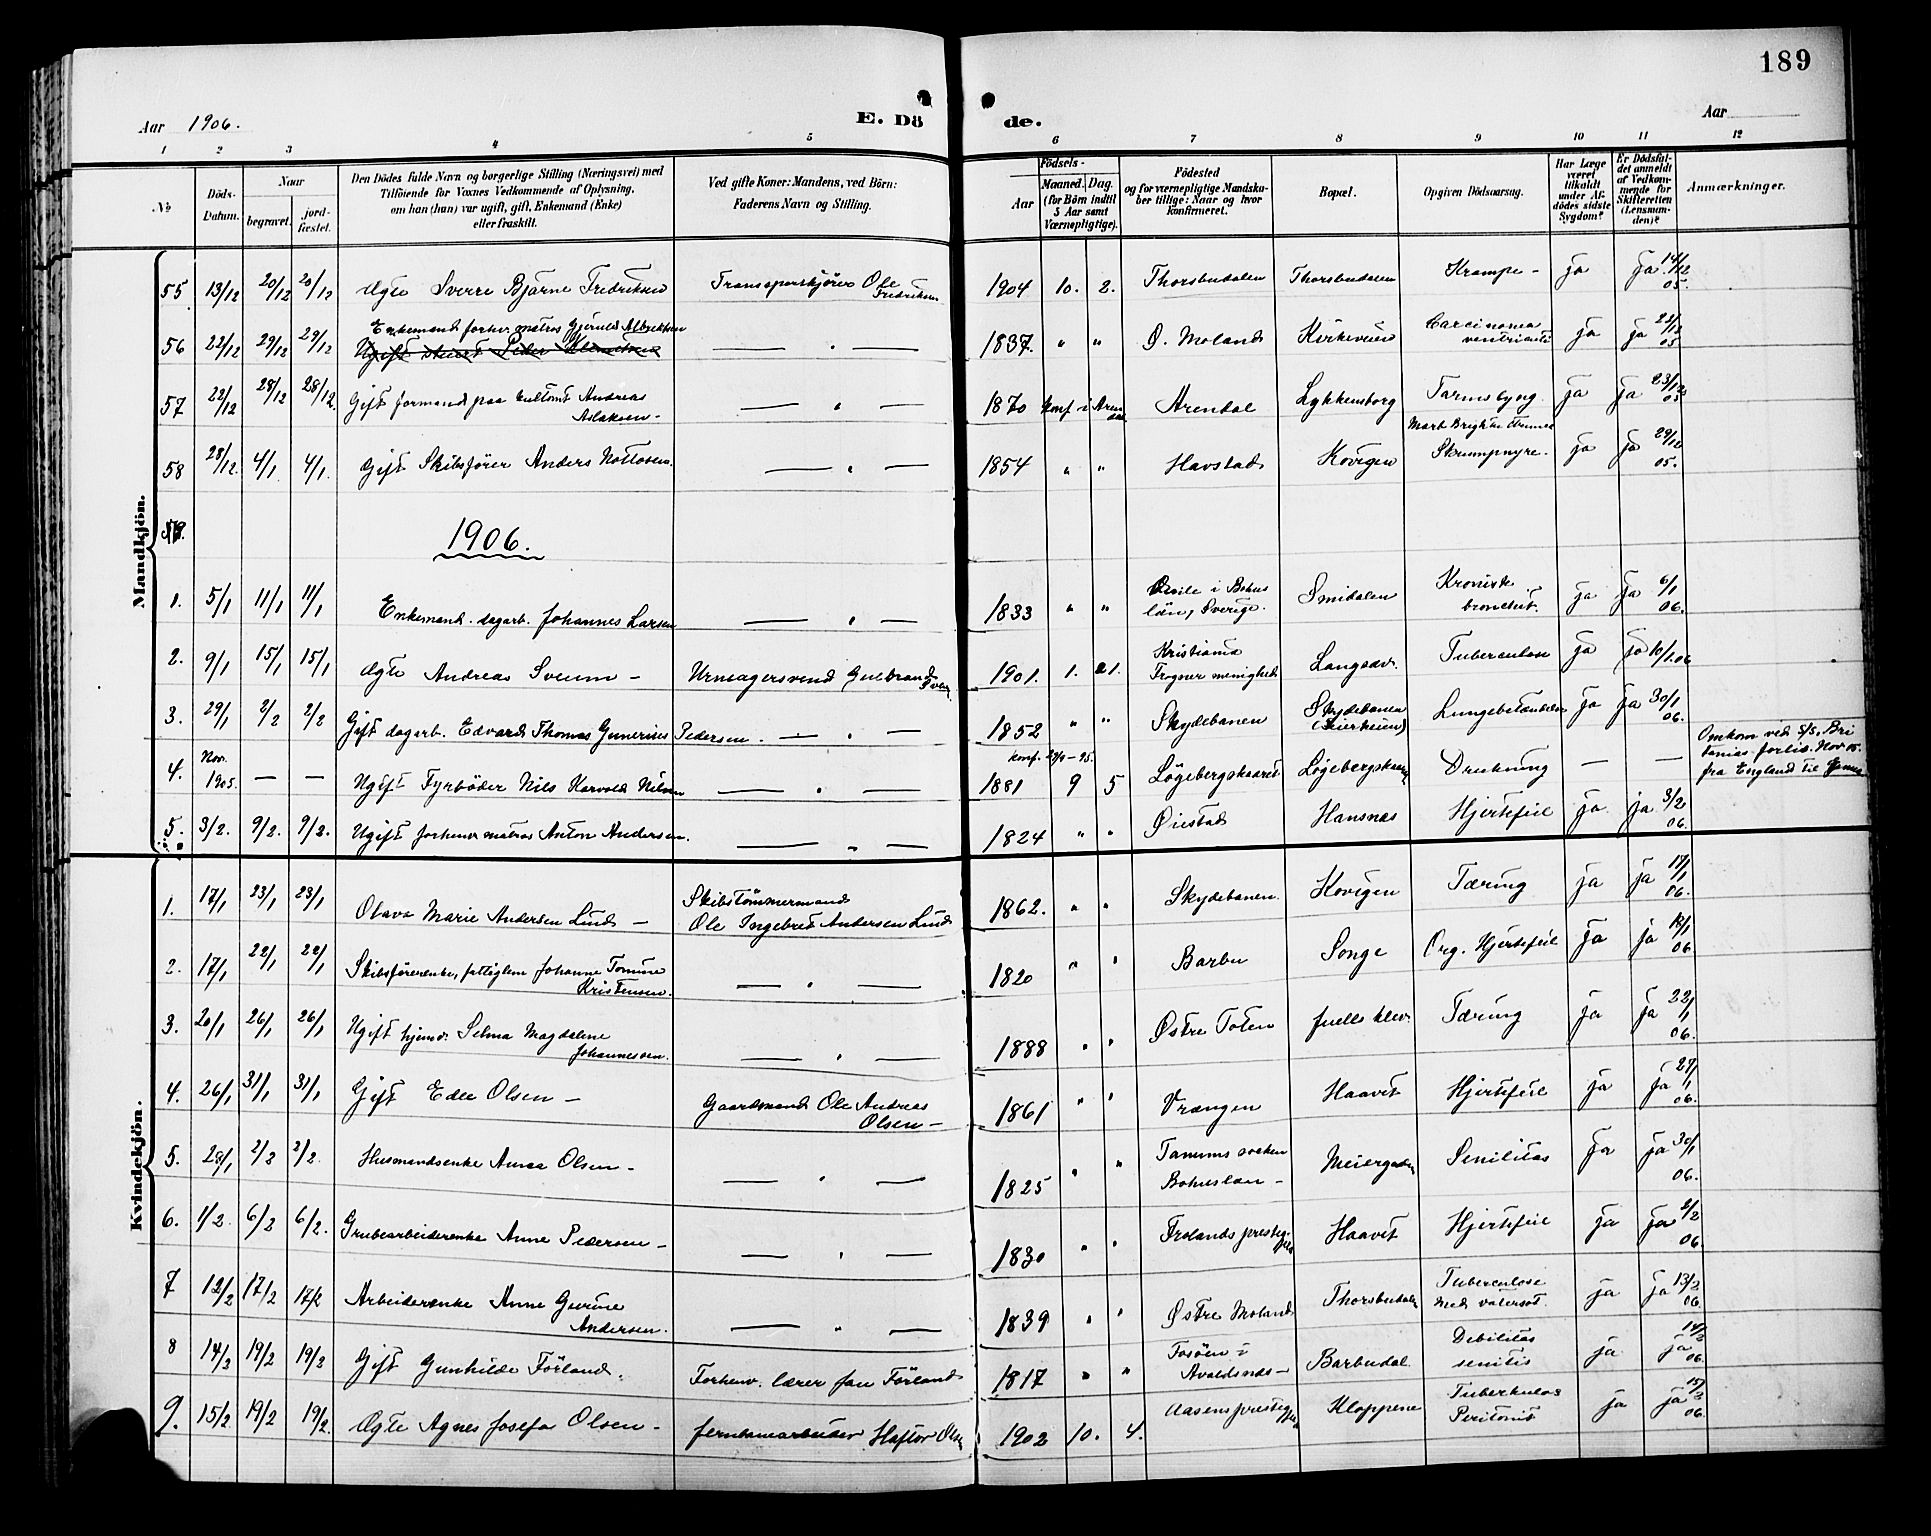 189
Aar 1906. E. Dö de. Aar
1 2 3 4 5 6 7 8 9 10 11 12
№ Döds-Datum. Naar begravet. jordfæstet. Den Dödes fulde Navn og borgerlige Stilling (Næringsvei) med Tilföiende for Voxnes Vedkommende af Oplysning, om han (hun) var ugift, gift, Enkemand (Enke) eller fraskilt. Ved gifte Koner: Mandens, ved Börn: Faderens Navn og Stilling. Födsels- Aar Maaned. Dag. (for Börn indtil 5 Aar samt Værnepligtige). Födested og for værnepligtige Mandskaber tillige: Naar og hvor konfirmeret. Bopæl. Opgiven Dödsaarsag. Har Læge været tilkaldt under Afdödes sidste Sygdom? Er Dödsfaldet anmeldt af Vedkommende for Skifteretten (Lensmanden)? Anmærkninger.
Mandkjön.
55 13/12 20/12 20/12 Ægte Sverre Bjarne Fredriksen Transportkjører Ole Fredriksen 1904 10. 2. Thorsbudalen Thorsbudalen Krampe - ja ja 14/12 05.
56 22/12 29/12 29/12 Enkemand forhv. matros Gjeruld Albrektsen — " — 1837. " " Ø. Moland Kirkeveien Carcinoma ventriculi ja ja 22/12 05
57 22/12 28/12 28/12. Gift formand paa Andreas Aslaksen - — " — 1870 konf i Arendal Arendal Lykkensborg Tarmslyng ja ja 23/12 05
58 28/12. 4/1 4/1. Gift Skibsfører Anders Nottosen. — " — 1854 " " Havstad Kovigen Morb. Brightii Skrumpnyre. ja ja 29/12 05.
1906.
1. 5/1 11/1 11/1 Enkemand. dagarb. Johannes Larsen — " — 1833 " " i Bohuslän, Sverige. Smidalen Kronisk bronchit. ja ja 6/1 06.
2. 9/1 15/1 15/1 Ægte Andreas Sveum - Urmagersvend Gulbrand Sveum 1901. 1. 21. Kristiania Frogner menighed Langsæv. Tuberculose ja ja 10/1.06
3. 29/1 2/2 2/2 Gift dagarb. Edvard Thomas Gunerius Pedersen. — " — 1852 " " Skydebanen Skydebanen Lungebetændelse ja ja 30/1 06.
4. Nov. 1905. — — Ugift Fyrbøder Nils Harvold Nilsen — " — konf. 29/9-95. 1881 9 5 Løgebergskaaret Løgebergskaaret Drukning — — Omkom ved S/S. Britanias forlis. Nov 05. fra England til
5. 3/2. 9/2. 9/2. Ugift forhenv matros Anton Andersen. — " — 1824 " " Øiestad Hansnæs Hjertefeil ja. ja 3/2 06.
Kvindekjön.
1. 17/1 23/1 23/1 Olava Marie Andersen Lund - Skibstømmermand Ole Ingebret Andersen Lund 1862. " " Skydebanen. Kovigen Tæring ja ja 17/1 06.
2. 17/1 22/1 22/1 Skibsførerenke, fattiglem Johanne Tomine Kristensen. — " — 1820 " " Barbu Songe Org. Hjertefeil ja ja 18/1 06
3. 20/1 26/1 26/1 Ugift hjemv. Selma Magdalene Johannessen. — " — 1888 " " Østre Toten Tæring ja ja 22/1 06.
4. 26/1 31/1 31/1 Gift Edle Olsen - Gaardmand Ole Andreas Olsen - 1861 " " Vrængen Haavet Hjertefeil ja ja 27/1 06.
5. 29/1 2/2 2/2. Husmandsenke Anna Olsen - — " — 1825 " " Tanums socken Bohuslän - Meiergaden Senilitas ja ja 30/1 06.
6. 1/2. 6/2 6/2. Grubearbeiderenke Anne Pedersen - — " — 1830 " " Frolands prestegjeld Haavet Hjertefeil ja ja 2/2 06.
7 12/2 17/2 17/2 Arbeiderenke Anne Gurine Andersen. — " — 1839 " " Østre Moland Thorsbudalen Tuberculose med vatersot. ja ja 13/2 06.
8 14/2 19/2 19/2 Gift Gunhilde Förland. Forhenv. lærer Jan Förland 1817 " " Fosöen i Avaldsnæs - Barbudal. Debilitas senilis ja ja 14/2 06.
9. 15/2. 19/2 19/2. Ægte Agnes Josefa Olsen - Jernbanearbeider Haftor Olsen 1902 10. 4. Aasens prestegjeld Kloppene Tuberkuløs Peritonit ja ja 15/2 06.